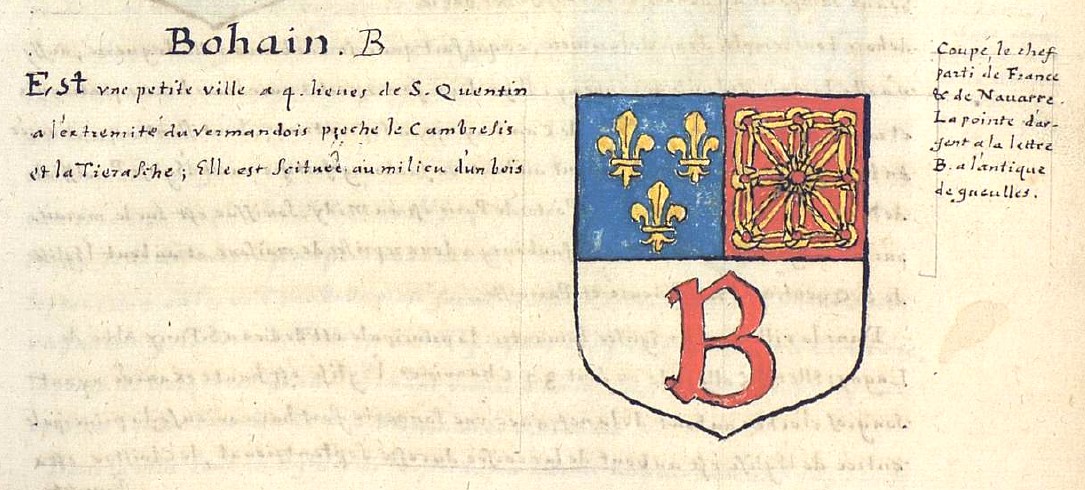 Bohain. B
Est vne petite ville a 4. lieues de S. Quentin
a l'extremité du vermandois proche le Cambresis
et la Tierasche; Elle est scituée au milieu d'un bois
Coupé, le chef
parti de France
& de Nauarre.
La pointe d'ar-
gent a la lettre
B. a l'antique
de gueulles.
B